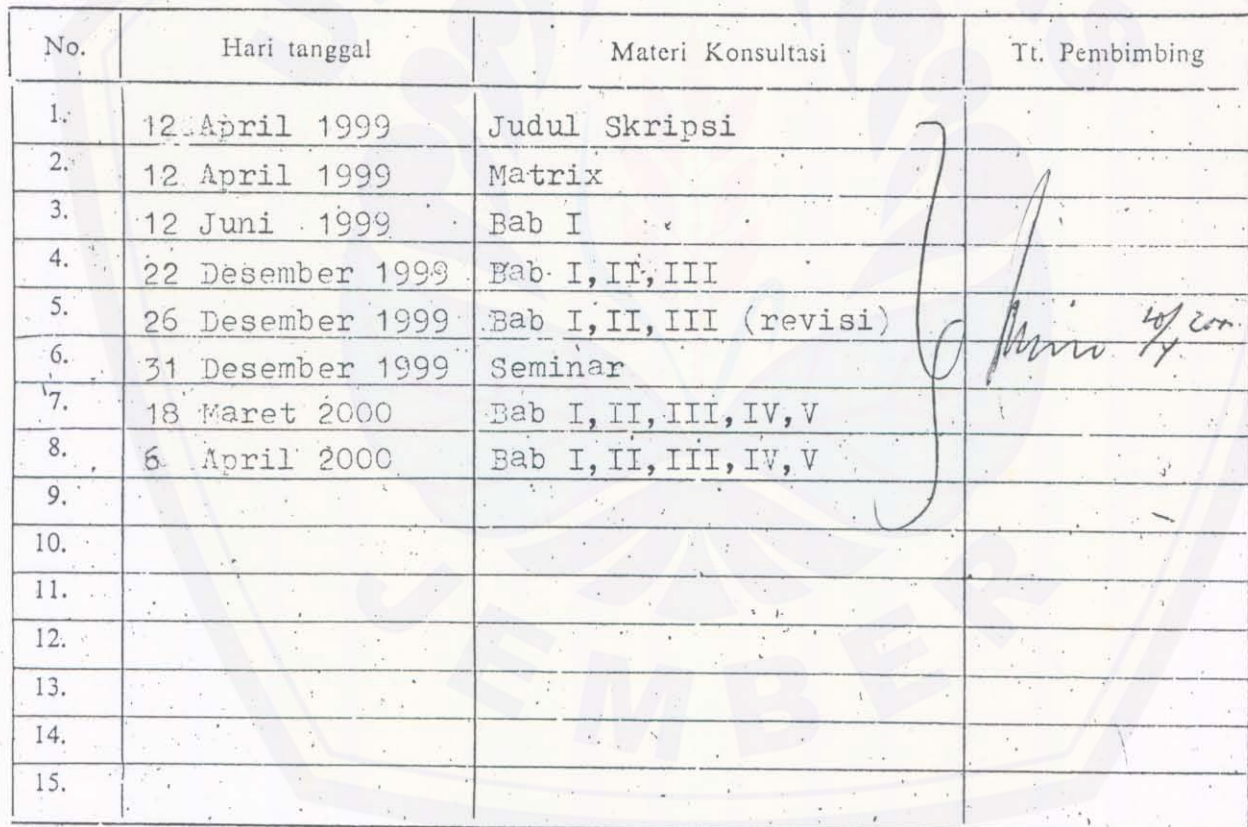 No. Hari tanggal Materi Konsultasi Tt. Pembimbing
1. 12 April 1999 Judul Skripsi
2. 12 April 1999 Matrix
3. 12 Juni 1999 Bab I
4. 22 Desember 1999 Bab I,II,III
5. 26 Desember 1999 Bab I,II,III (revisi)
6. 31 Desember 1999 Seminar
7. 18 Maret 2000 Bab I,II,III,IV,V
8. 6 April 2000 Bab I,II,III,IV,V
9.
10.
11.
12.
13.
14.
15.
JEMBER